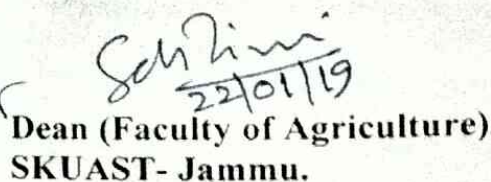 22/01/19
Dean (Faculty of Agriculture)
SKUAST- Jammu.